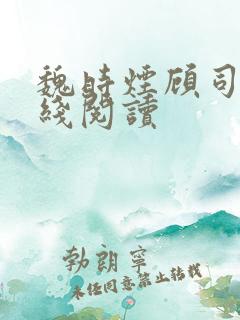 魏時煙顾司
綫閱讀
勃朗寧
未经同意禁止转载